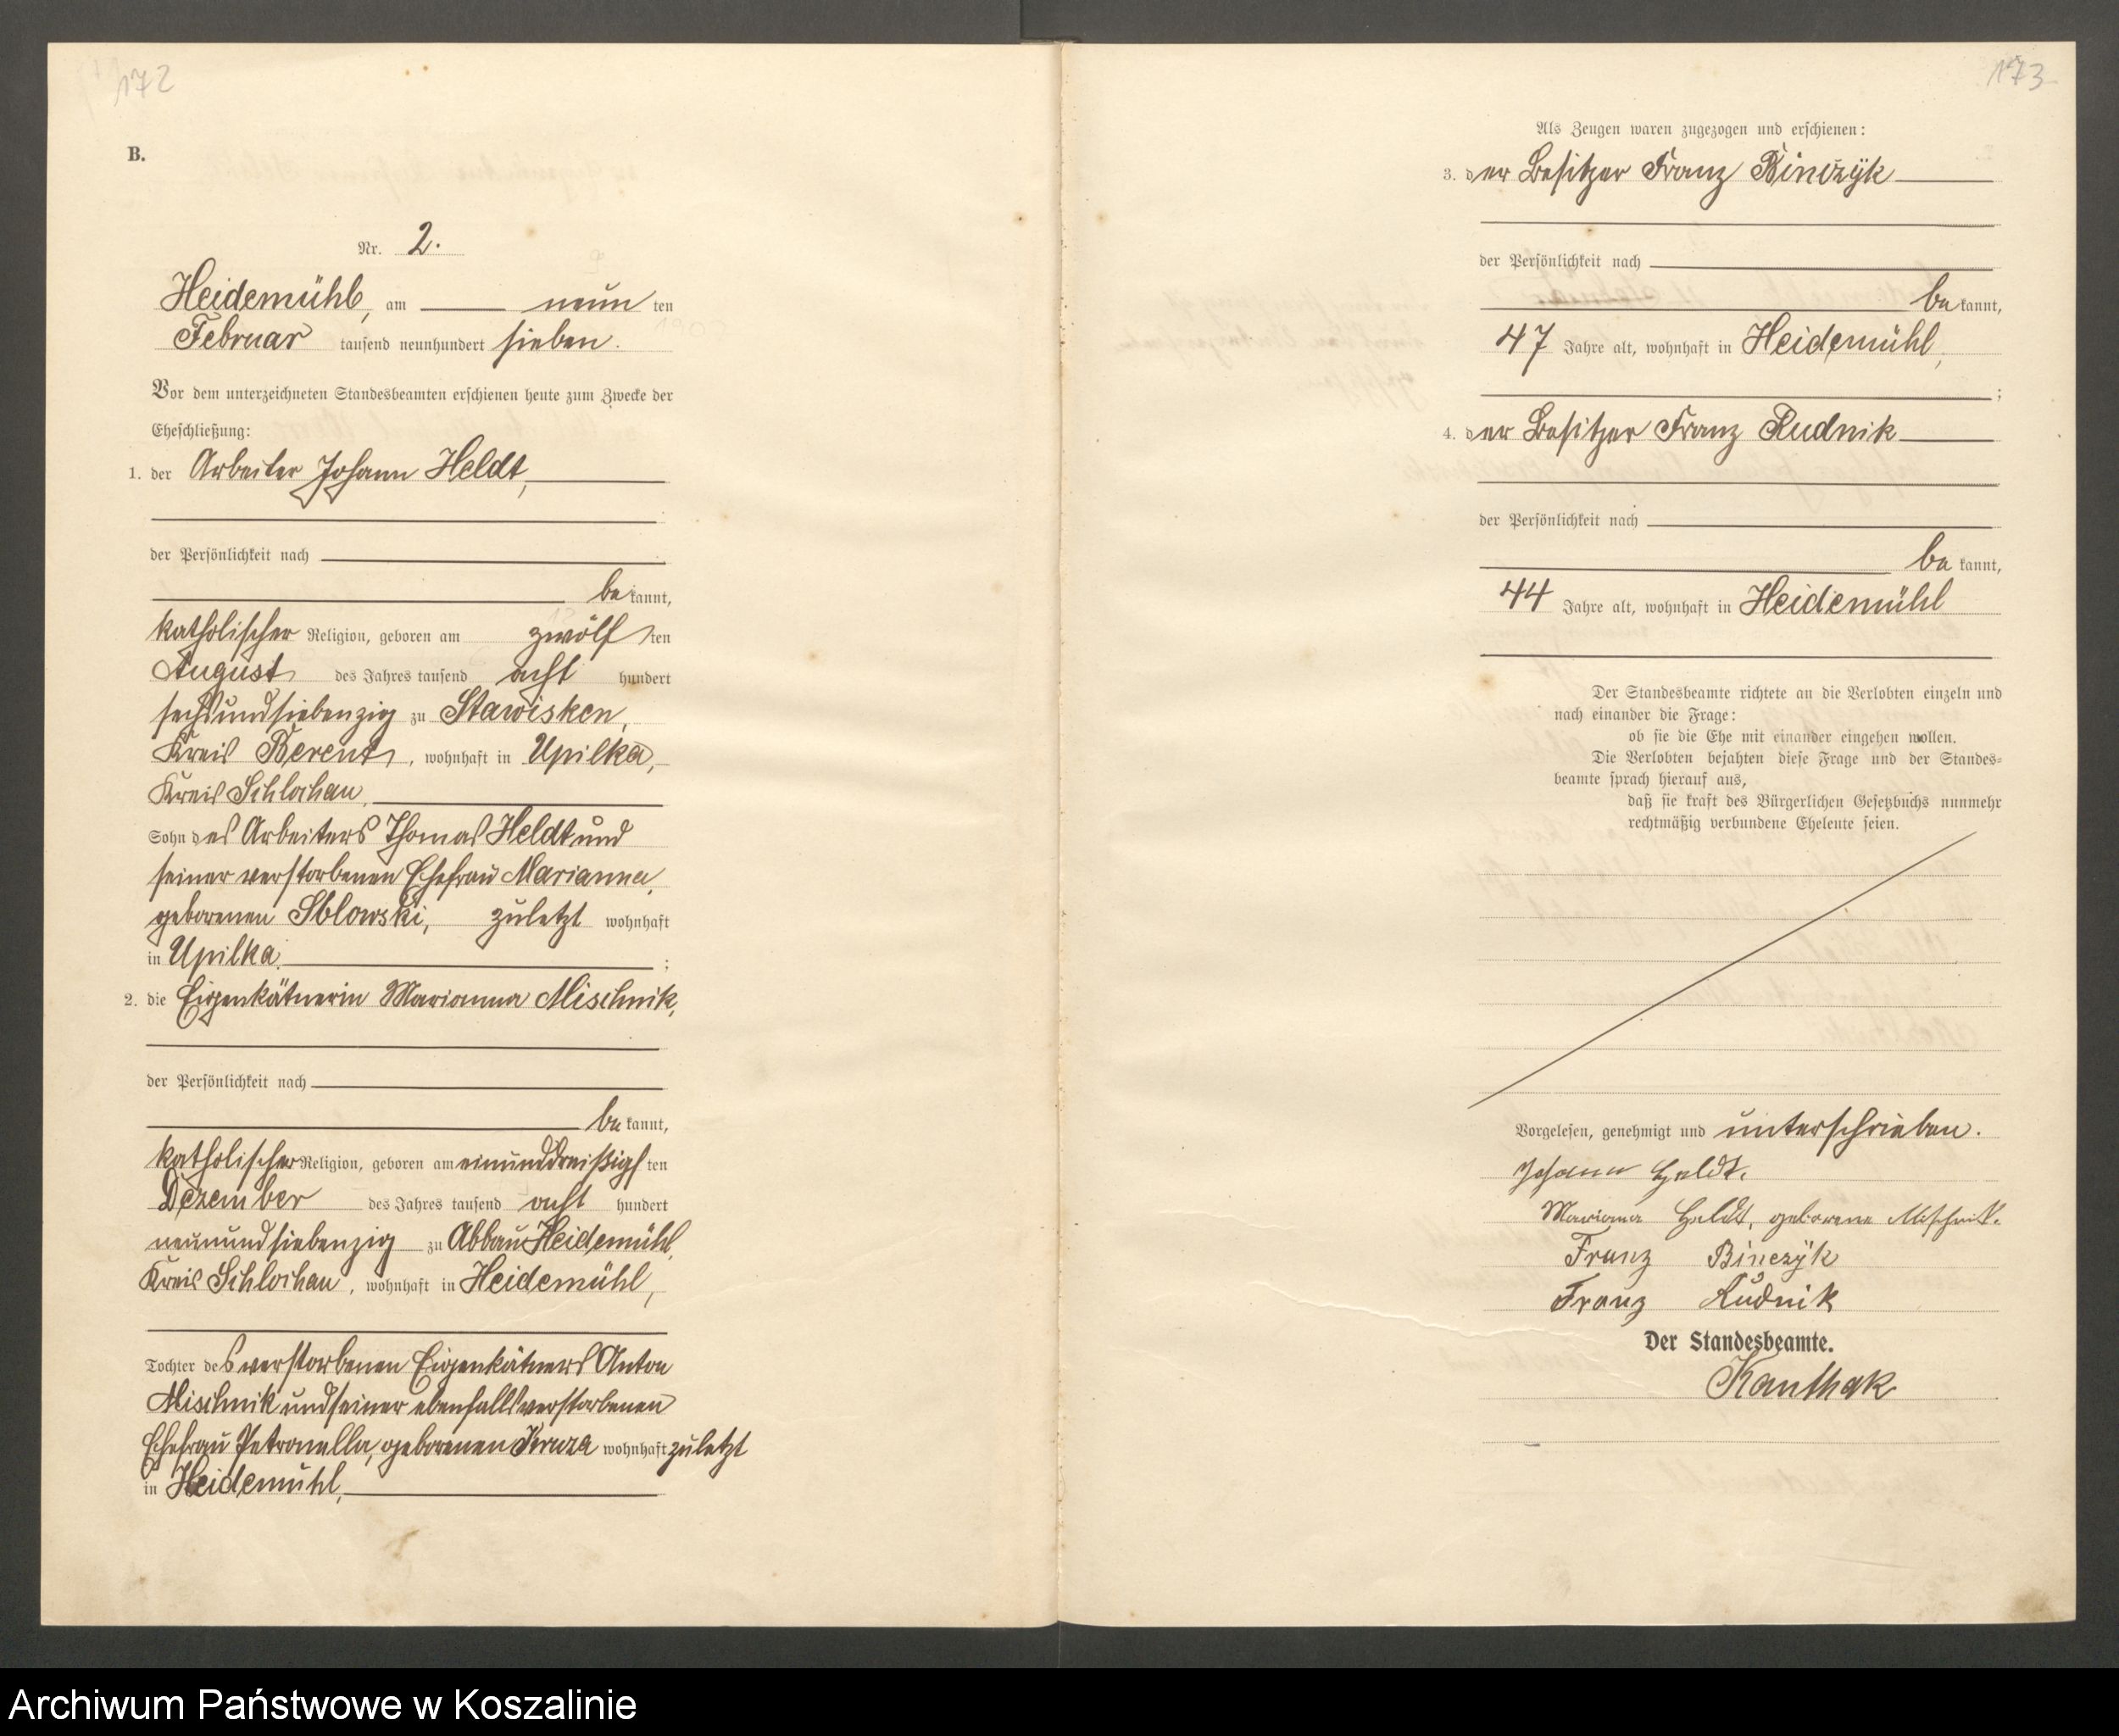 172
B.
Nr. 2.
Heidemühl, am neun ten
Februar tausend neunhundert sieben.
Vor dem unterzeichneten Standesbeamten erschienen heute zum Zwecke der
Eheschließung:
1. der Arbeiter Johann Heldt,
der Persönlichkeit nach
be kannt,
katholischer Religion, geboren am zwölf ten
August des Jahres tausend acht hundert
sechsundsiebenzig zu Stawisken,
Kreis Berent, wohnhaft in Upilka,
Kreis Schlochau,
Sohn des Arbeiters Thomas Heldt und
seiner verstorbenen Ehefrau Marianna,
geborenen Sblowski, zuletzt wohnhaft
in Upilka. ;
2. die Eigenkätnerin Marianna Mischnik,
der Persönlichkeit nach
be kannt,
katholischer Religion, geboren am einunddreißigs ten
Dezember des Jahres tausend acht hundert
neunundsiebenzig zu Abbau Heidemühl,
Kreis Schlochau, wohnhaft in Heidemühl,
Tochter des verstorbenen Eigenkätners Anton
Mischnik und seiner ebenfalls verstorbenen
Ehefrau Petronella, geborenen Kruza wohnhaft zuletzt
in Heidemühl,
173
Als Zeugen waren zugezogen und erschienen:
3. der Besitzer Franz Binczyk
der Persönlichkeit nach
be kannt,
47 Jahre alt, wohnhaft in Heidemühl,
;
4. der Besitzer Franz Rudnik
der Persönlichkeit nach
be kannt,
44 Jahre alt, wohnhaft in Heidemühl
Der Standesbeamte richtete an die Verlobten einzeln und
nach einander die Frage:
ob sie die Ehe mit einander eingehen wollen.
Die Verlobten bejahten diese Frage und der Standes-
beamte sprach hierauf aus,
daß sie kraft des Bürgerlichen Gesetzbuchs nunmehr
rechtmäßig verbundene Eheleute seien.
Vorgelesen, genehmigt und unterschrieben.
Johann Heldt.
Mariana Heldt, geborene Mischnik.
Franz Binczÿk
Franz Rudnik
Der Standesbeamte.
Kanthak
Archiwum Państwowe w Koszalinie